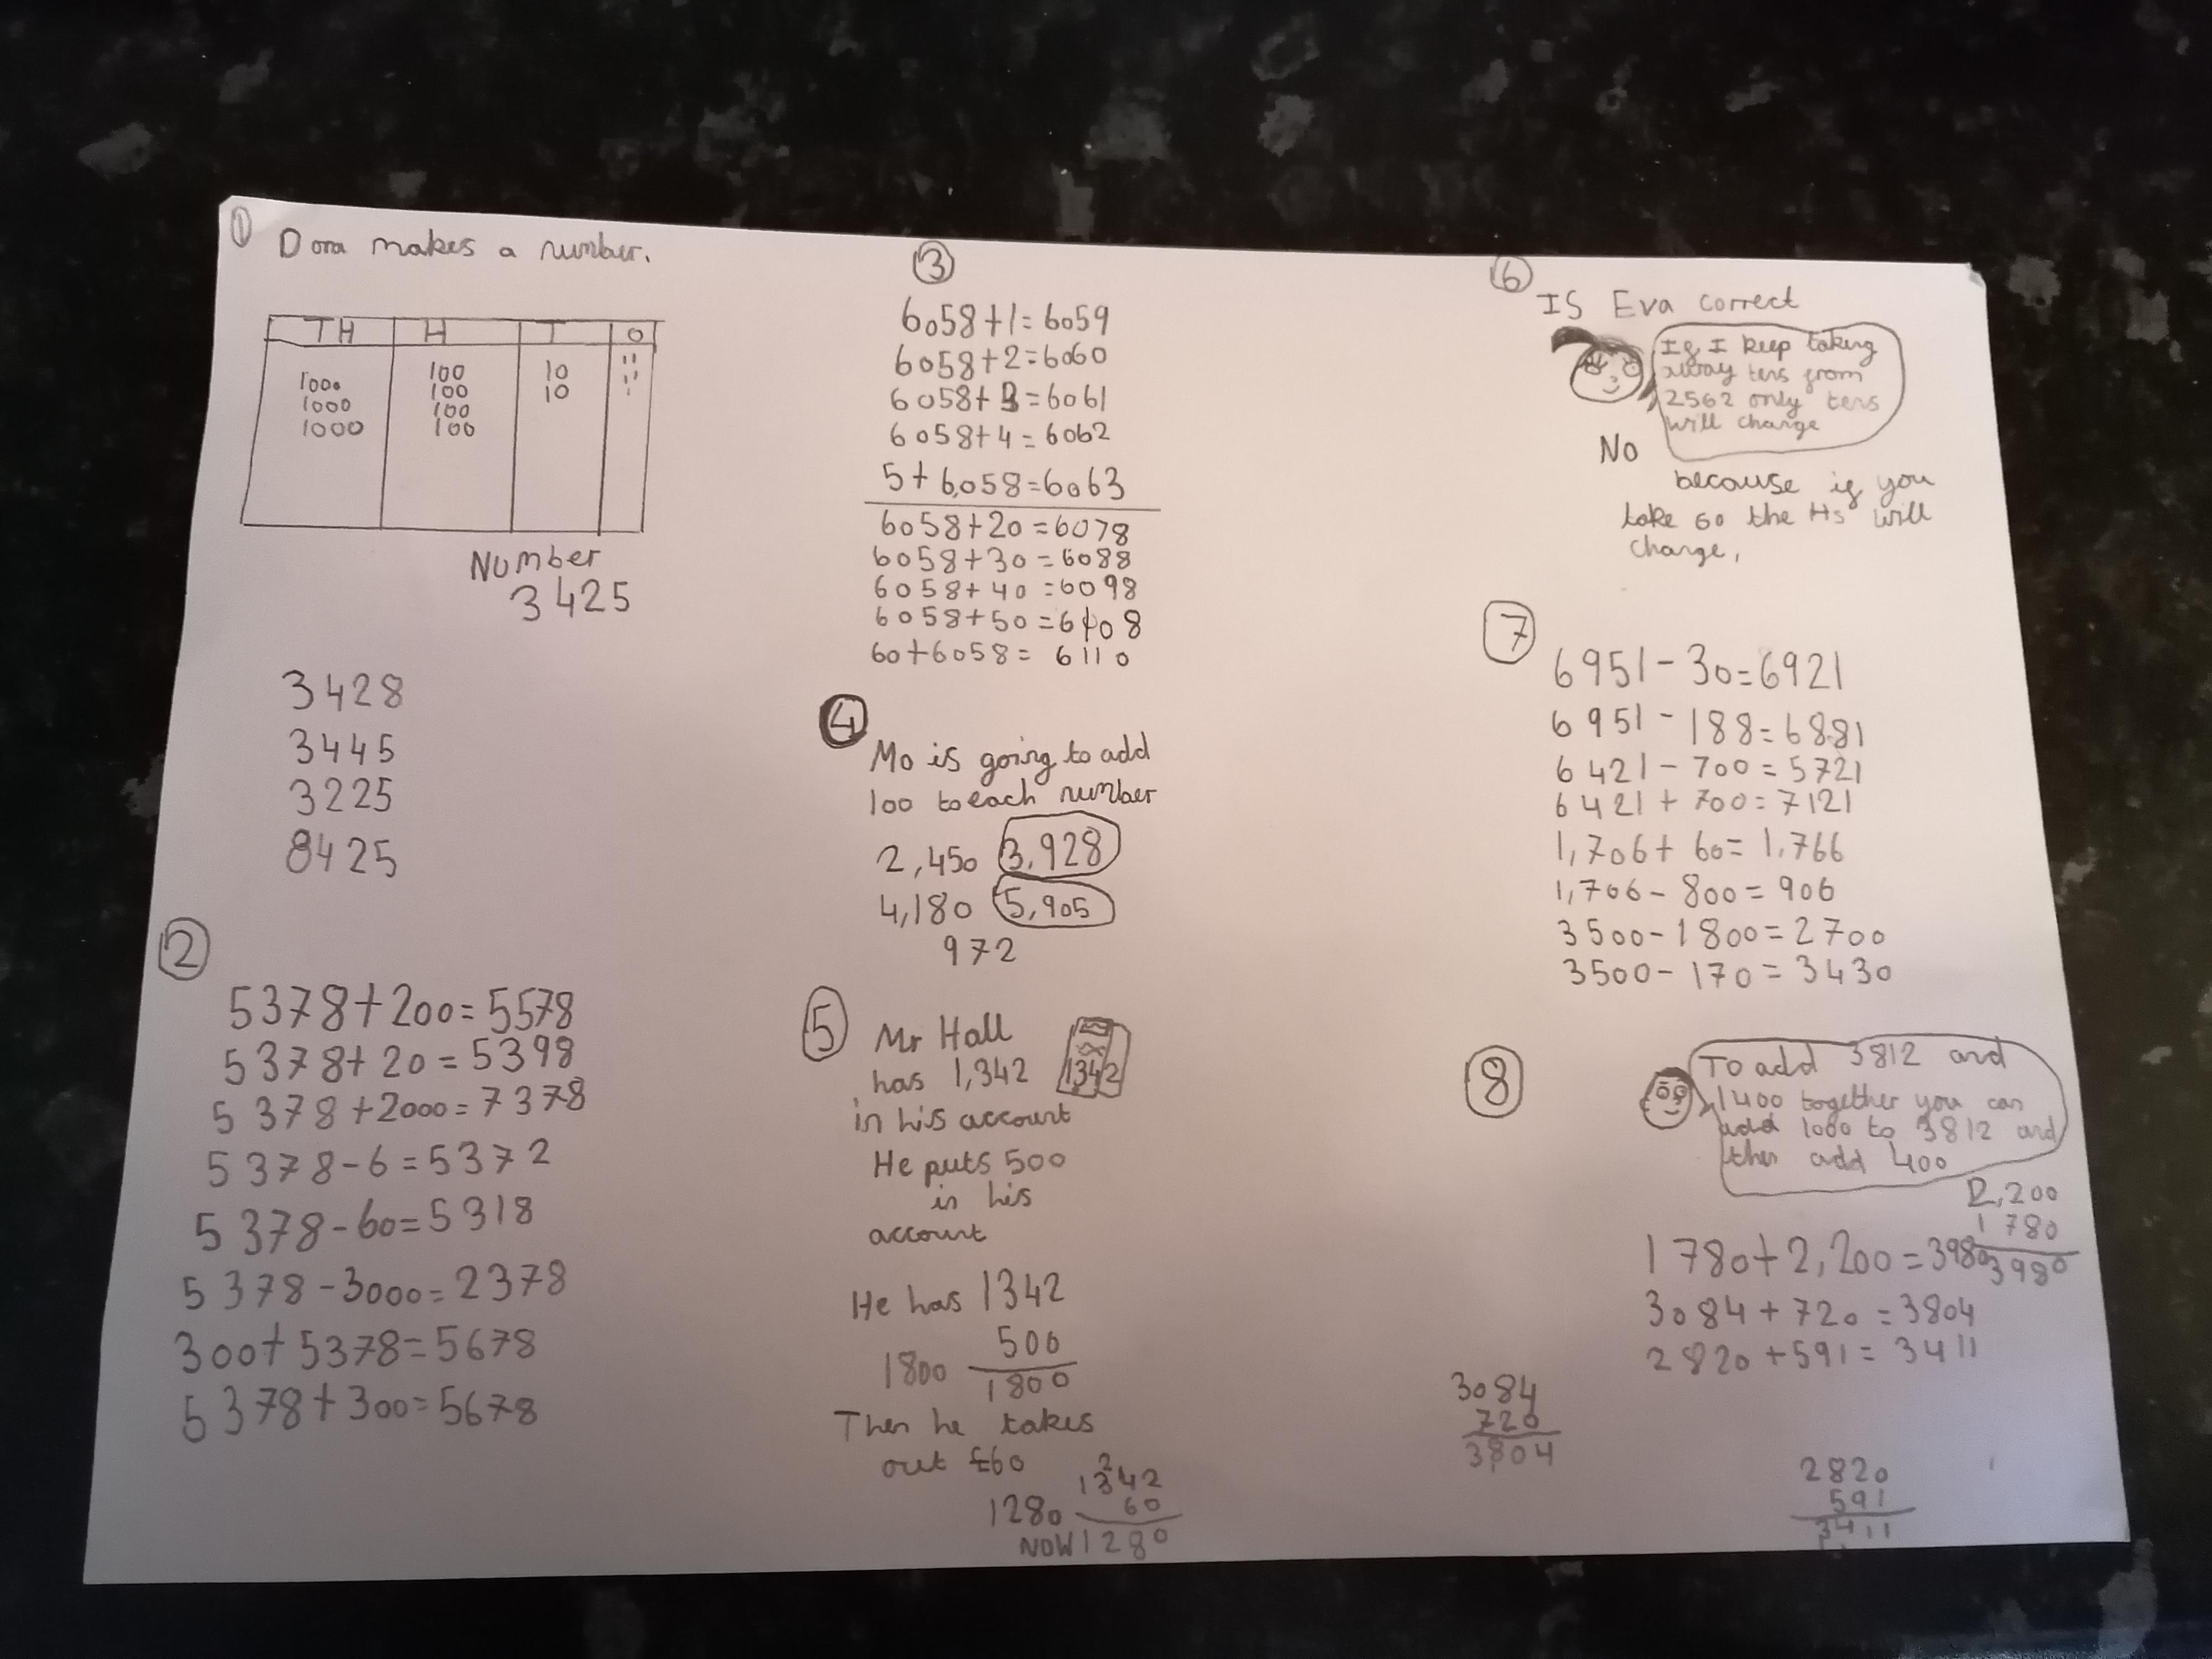 1
Dora makes a number.
TH H T O
1000 100 10 11
1000 100 10 11
1000 100 1
100
Number
3425
3428
3445
3225
8425
2
5378+200=5578
5378+20=5398
5378+2000=7378
5378-6=5372
5378-60=5318
5378-3000=2378
300+5378=5678
5378+300=5678
3
6058+1=6059
6058+2=6060
6058+3=6061
6058+4=6062
5+6058=6063
6058+20=6078
6058+30=6088
6058+40=6098
6058+50=6108
60+6058=6110
4
Mo is going to add
100 to each number
2,450 3,928
4,180 5,905
972
5
Mr Hall
has 1,342 1342
in his account
He puts 500
in his
account
He has 1342
500
1800 1800
Then he takes
out £60
2
1342
1280 60
NOW 1280
6
IS Eva correct
If I keep taking
away tens from
2562 only tens
will change
No
because if you
take 60 the Hs will
change,
7
6951-30=6921
6951-188=6881
6421-700=5721
6421+700=7121
1,706+60=1,766
1,706-800=906
3500-1800=2700
3500-170=3430
8
To add 3812 and
1400 together you can
add 1000 to 3812 and
then add 400
2,200
1780
3980
1780+2,200=3980
3084+720=3804
2820+591=3411
3084
720
3804
2820
591
3411